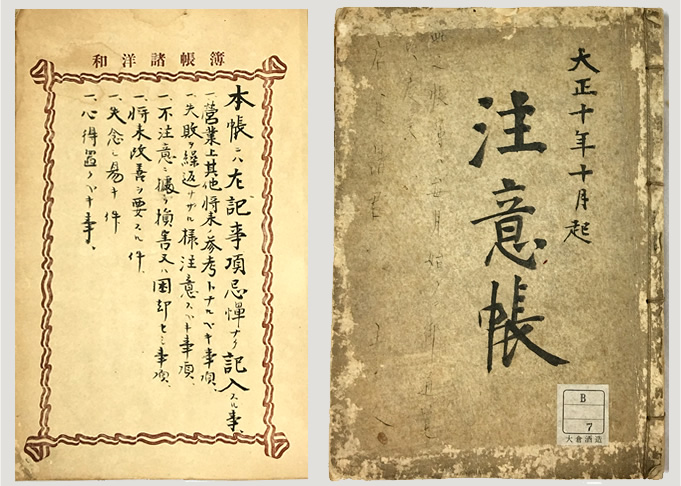 和洋諸帳簿
本帳ニハ左記事項忌憚ナク記入スル事、
一、營業上其他将来ノ参考トナルベキ事項、
一、失敗ヲ繰返サザル様注意スベキ事項、
一、不注意ニ據ル損害又ハ困却セシ事項、
一、将来改善ヲ要スル件、
一、失念シ易キ件
一、心得置クベキ事、
大正十年十月起
注意帳
B
7
大倉酒造